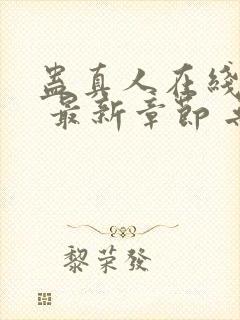 蛊真人在线
最新章节
黎荣發